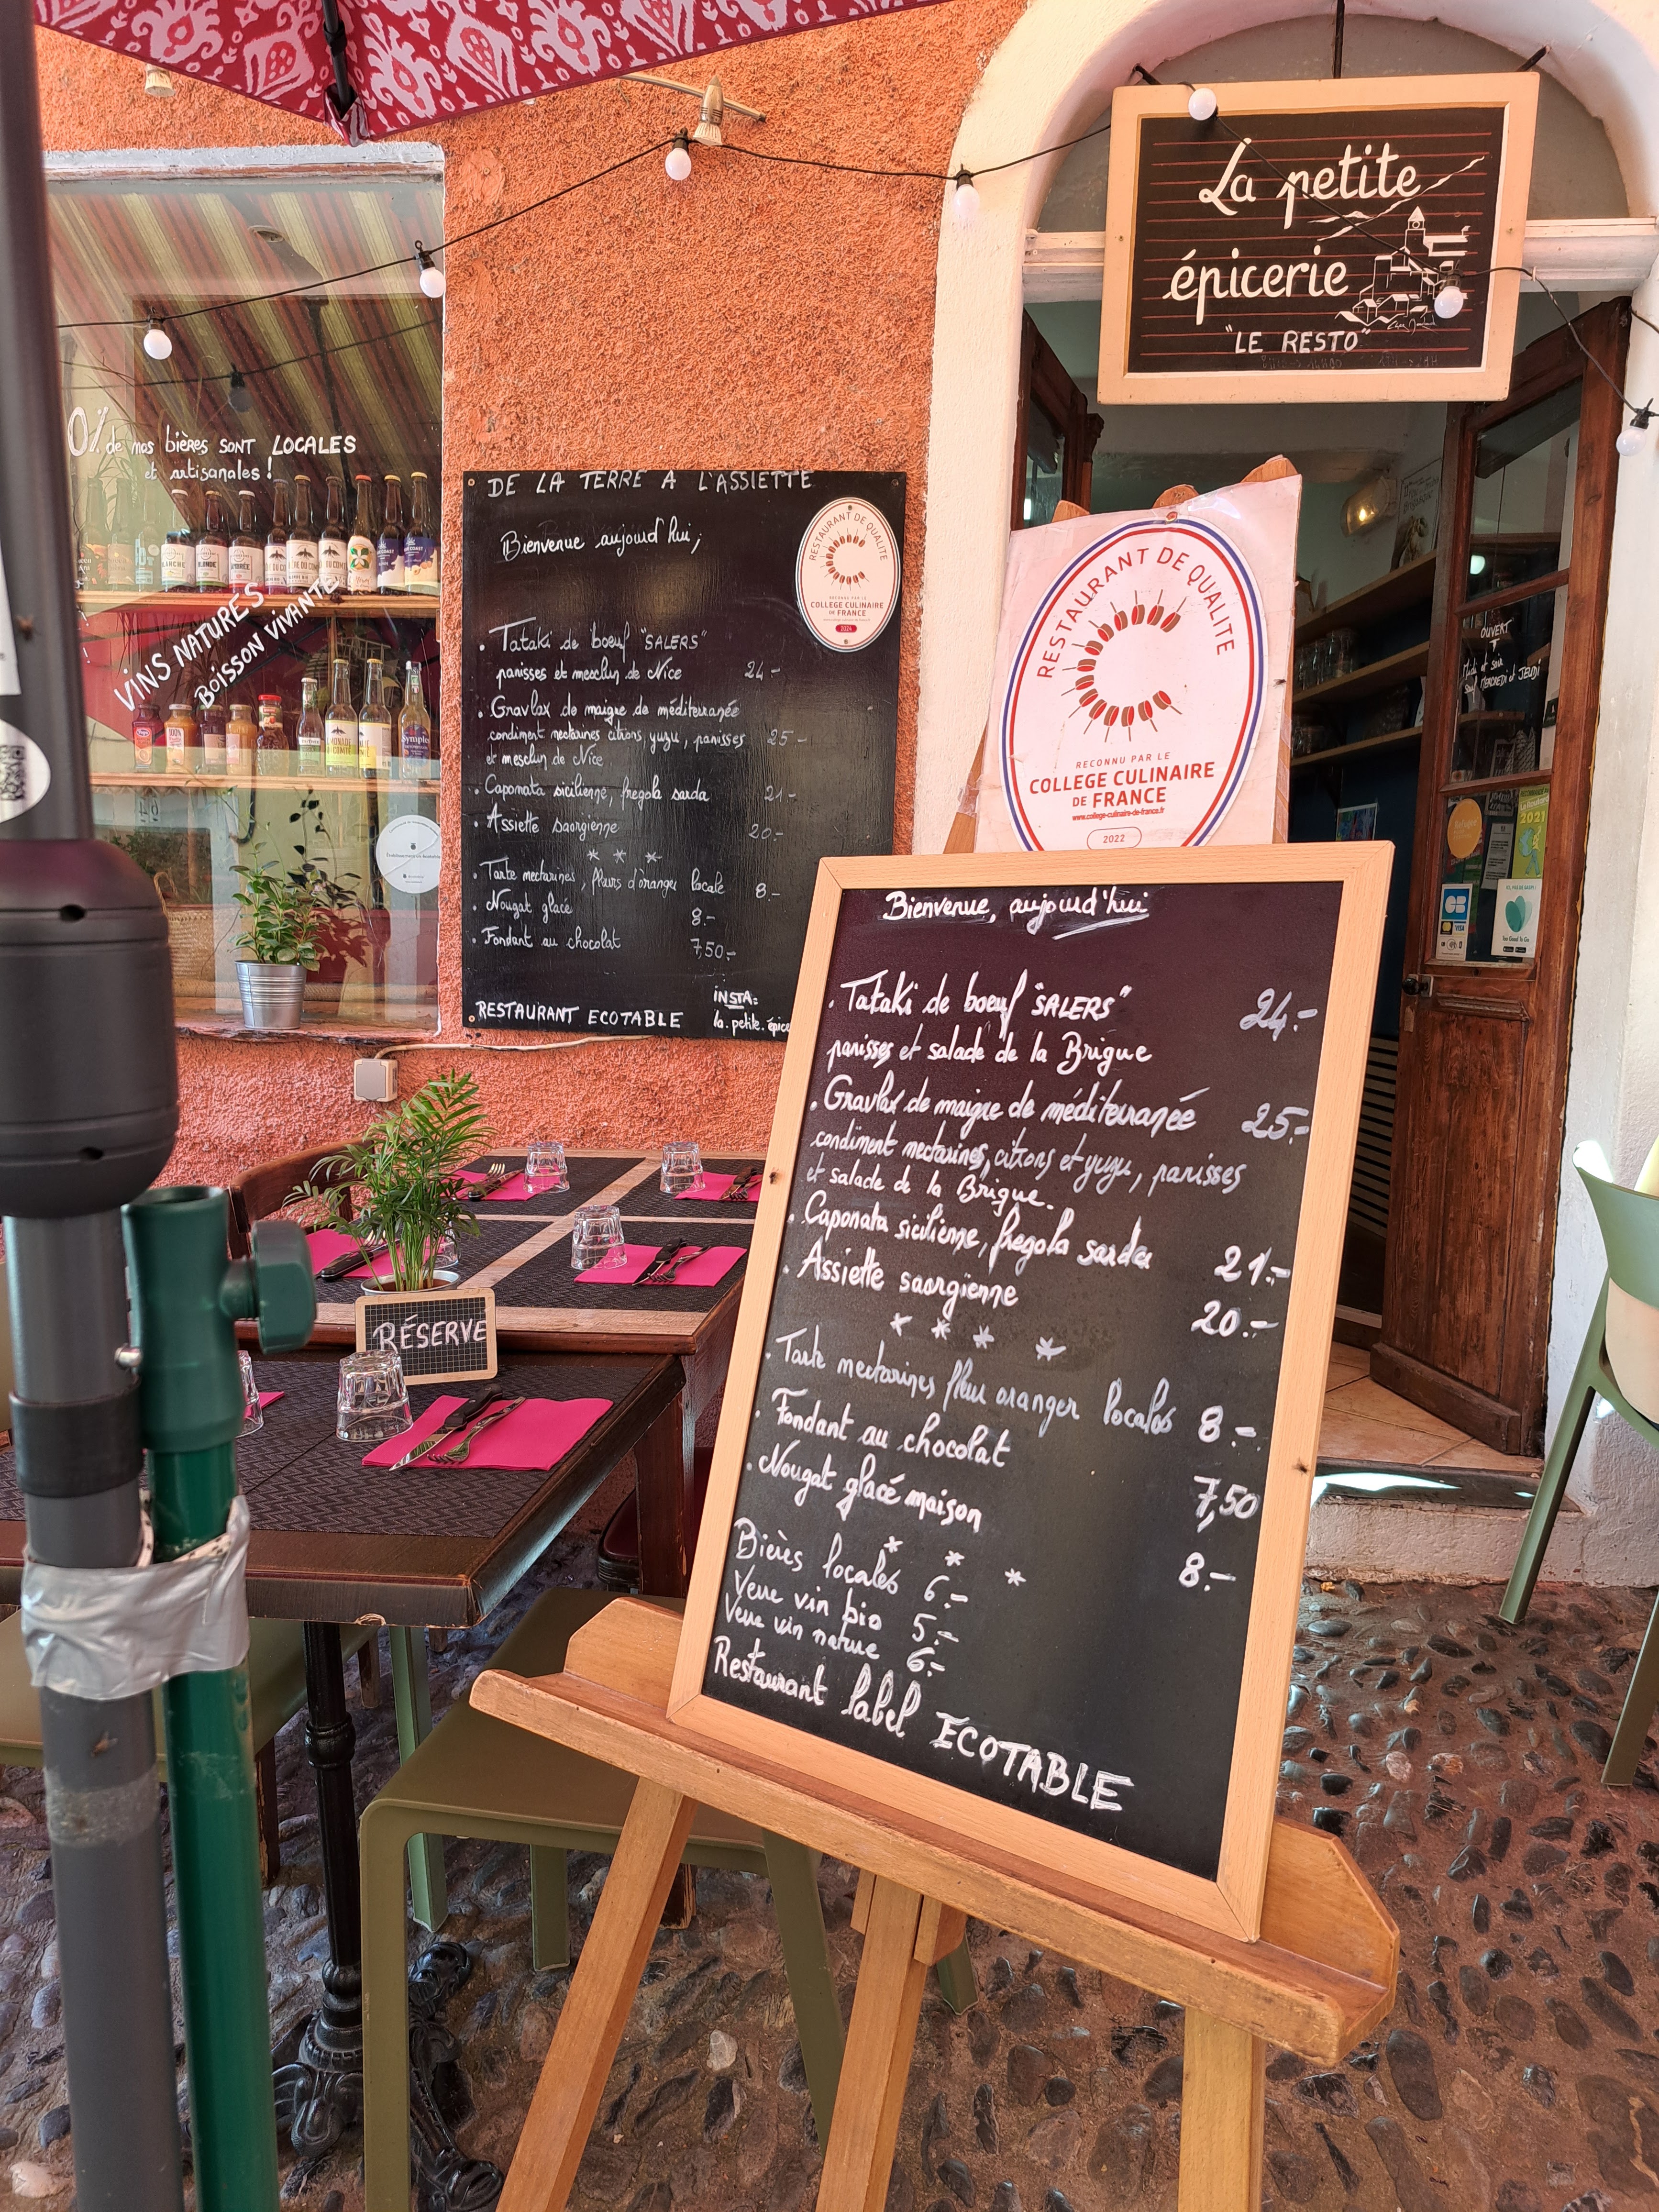 La petite
épicerie
"LE RESTO"
0% de nos bières SONT LOCALES
et artisanales !
VINS NATURES
BOISSON VIVANTE
!
BLANCHE
BLONDE
DE LA TERRE A L'ASSIETTE
Bienvenue aujourd'hui,
RESTAURANT DE QUALITÉ
RECONNU PAR LE
COLLEGE CULINAIRE
DE FRANCE
2024
. Tataki de boeuf "SALERS"
panisses et mesclun de Nice 24-
. Gravlax de maigre de méditerranée
condiment nectarines citrons, yuzu, panisses 25-
et mesclun de Nice
. Caponata sicilienne, fregola sarda 21-
. Assiette saorgienne 20.-
* * *
. Tarte nectarines, fleurs d'oranger locale 8.-
. Nougat glacé 8.-
. Fondant au chocolat 7,50.-
RESTAURANT ECOTABLE
INSTA:
la.petite.épice
RESTAURANT DE QUALITÉ
RECONNU PAR LE
COLLEGE CULINAIRE
DE FRANCE
www.college-culinaire-de-france.fr
2022
OUVERT
Midi et soir
sauf MERCREDI et JEUDI
2021
CB
VISA
Too Good To Go
RÉSERVE
Bienvenue, aujourd'hui
. Tataki de boeuf "SALERS" 24.-
panisses et salade de la Brigue
. Gravlax de maigre de méditerranée 25.-
condiment nectarines, citrons et yuzu, panisses
et salade de la Brigue.
. Caponata sicilienne, fregola sarda 21.-
. Assiette saorgienne 20.-
* * * *
. Tarte nectarines fleur oranger locales 8.-
. Fondant au chocolat 7,50
. Nougat glacé maison 8.-
* * *
Bières locales 6.-
Verre vin bio 5.-
Verre vin nature 6.-
Restaurant label ECOTABLE